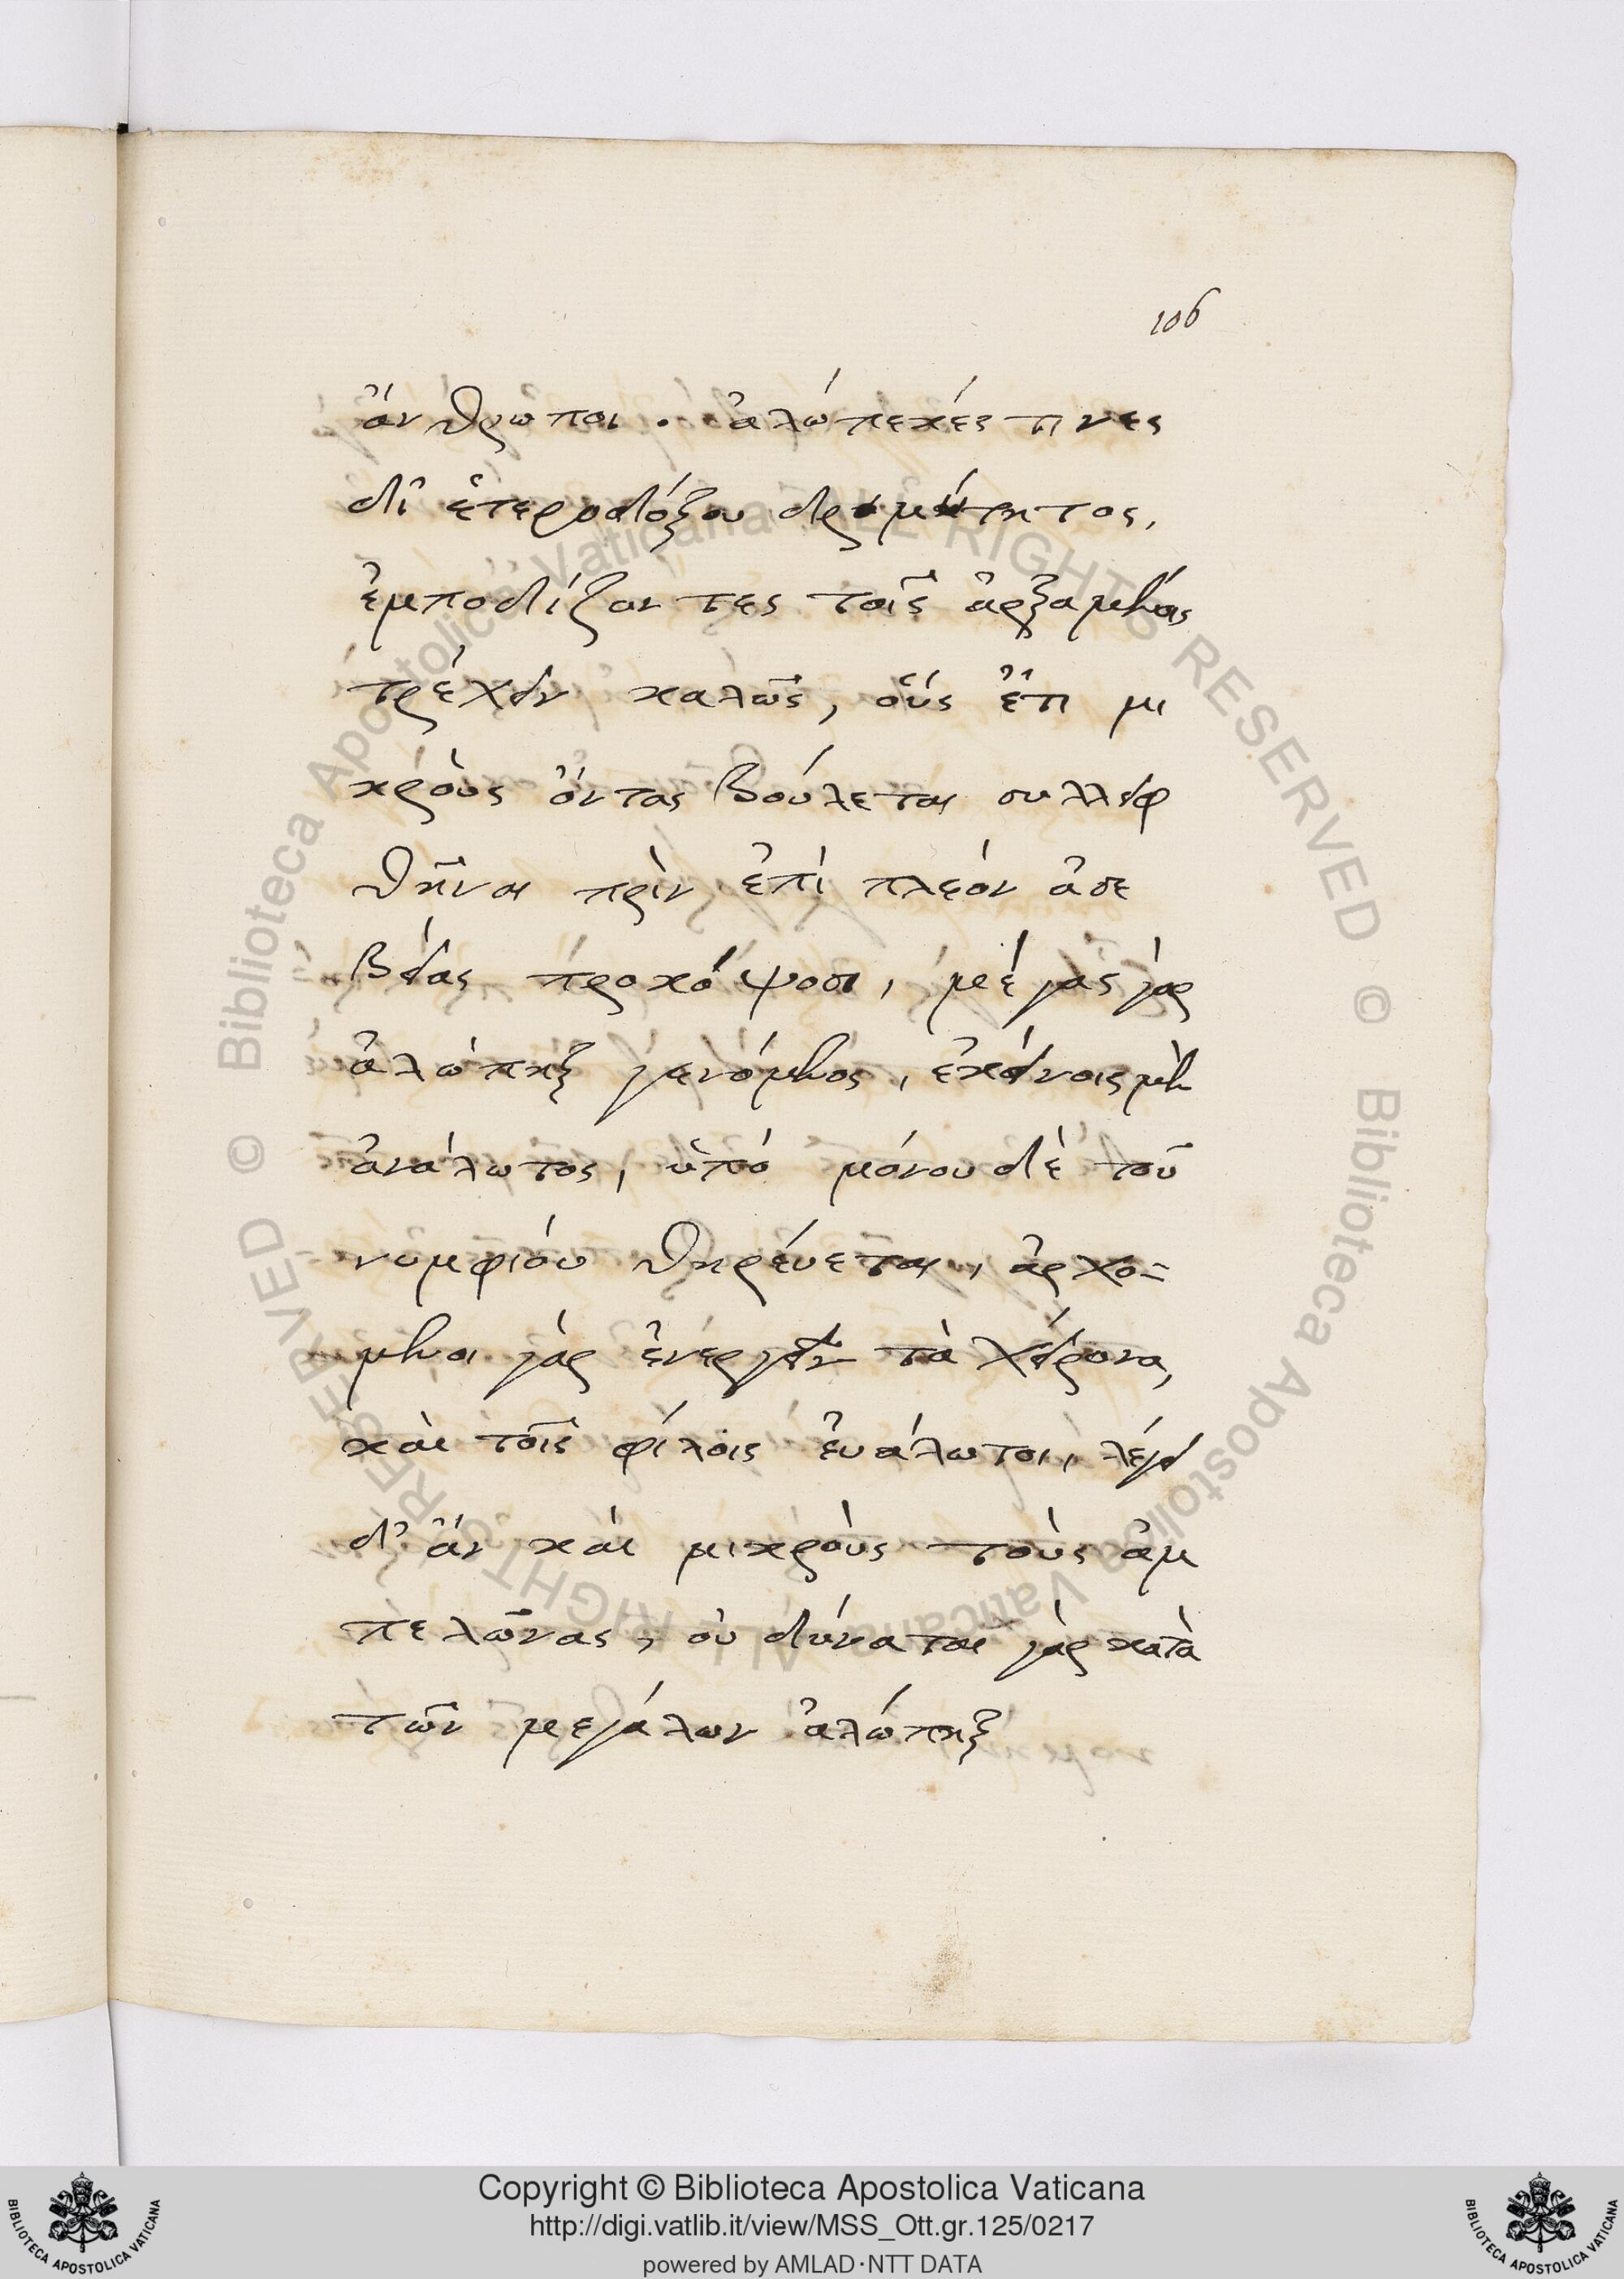 106
ἄνθρωποι. ἀλώπεκές τινες
δι ἑτεροδόξου δριμύτητος,
ἐμποδίζοντες τοῖς ἀρξαμένοις
τρέχειν καλῶς, οὓς ἔτι μι
κροὺς ὄντας βούλεται συλλειφ
θῆναι πρὶν ἐπὶ πλεόν ἀσε
βείας προκόψοσι, μέγας γὰρ
ἀλώπηξ γενόμενος, ἐκείνοις μὲν
ἀνάλωτος, ὑπό μόνου δὲ τοῦ
νυμφίου θηρέυεται, ἀρχο=
μενοι γὰρ ἐνεργεῖν τὰ χείρονα,
καὶ τοῖς φίλοις ἐυάλωτοι, λέγει
δ' ἂν καὶ μικροὺς τοὺς ἀμ
πελῶνας, οὐ δύναται γὰρ κατὰ
τῶν μεγάλων ἀλώπηξ
Copyright © Biblioteca Apostolica Vaticana
http://digi.vatlib.it/view/MSS_Ott.gr.125/0217
powered by AMLAD·NTT DATA
BIBLIOTECA APOSTOLICA VATICANA
BIBLIOTECA APOSTOLICA VATICANA
© Biblioteca Apostolica Vaticana ALL RIGHTS RESERVED
© Biblioteca Apostolica Vaticana ALL RIGHTS RESERVED